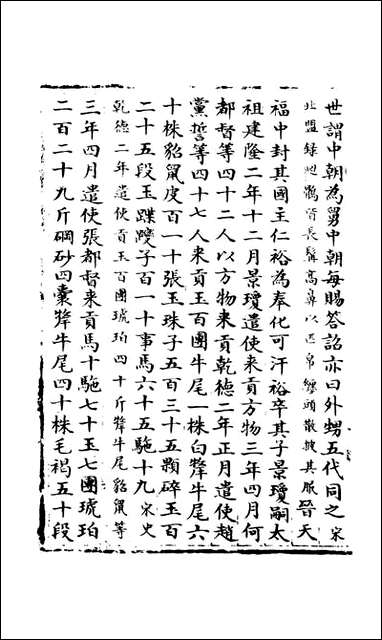 世謂中朝為舅中朝每賜答詔亦曰外甥五代同之宋
北盟録回鶻皆長髯高鼻以疋帛纏頭散披其服晉天
福中封其國主仁裕為奉化可汗裕卒其子景瓊嗣太
祖建隆二年十二月景瓊遣使來貢方物三年四月何
都督等四十二人以方物來貢乾德二年正月遣使趙
黨誓等四十七人來貢玉百團牛尾一株白犛牛尾六
十株貂鼠皮百一十張玉珠子五百三十五顆碎玉百
二十五段玉䩞躞子百一十事馬六十五駞十九宋史
乾德二年遣使貢玉百團琥珀四十斤犛牛尾貂鼠等
三年四月遣使張都督来貢馬十駞七十玉七團琥珀
二百二十九斤碙砂四囊犛牛尾四十株毛褐五十段